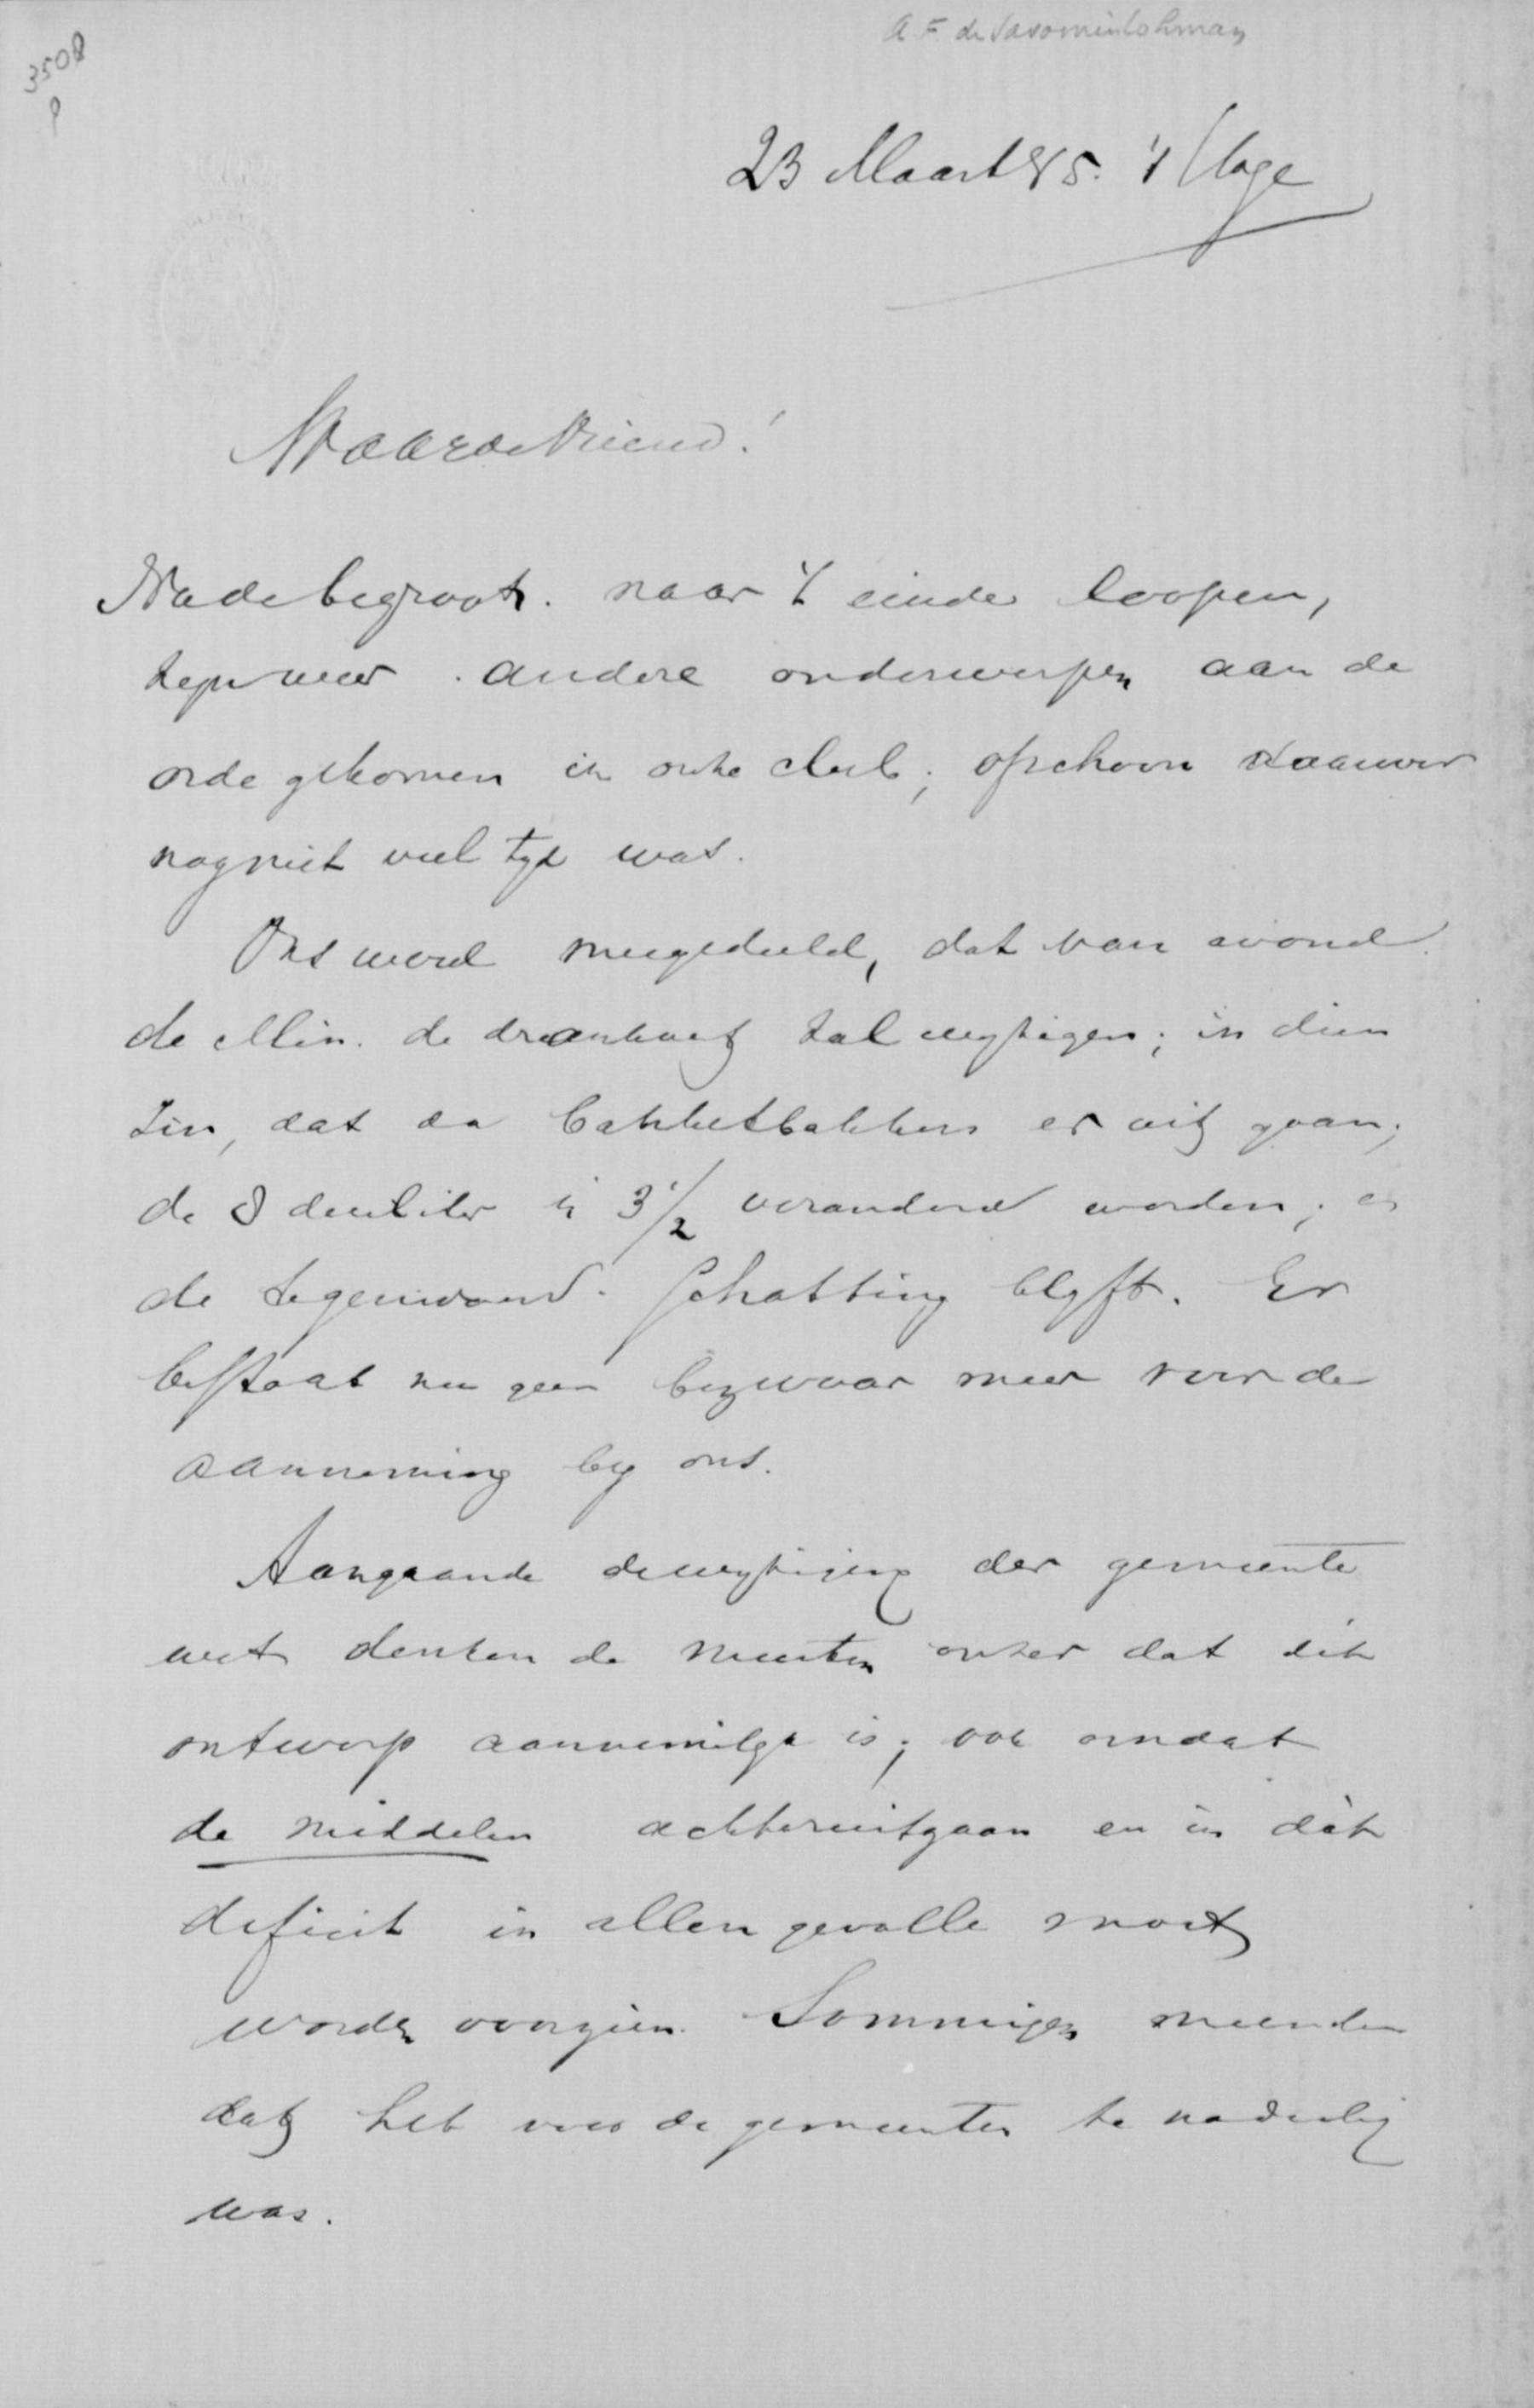 A.F. de Savornin Lohman
3508
23 Maart 85. 's Hage
Waarde Vriend!
Nu de begroot. naar 't einde loopen,
zijn weer andere onderwerpen aan de
orde gekomen in onze club; ofschoon daarvoor
nog niet veel tijd was.
Ons werd meegedeeld, dat van avond
de Min. de drankwet zal wijzigen; in dien
zin, dat de banketbakkers er uit gaan;
de deciliter in 3 1/2 veranderd worden; en
de tegenwoord. schatting blijft. Er
bestaat nu geen bezwaar meer voor de
aanneming bij ons.
Aangaande de wijziging der gemeente
wet denken de meesten onzer dat dit
ontwerp aannemelijk is; ook omdat
de middelen achteruitgaan en in dàt
deficit in allen gevalle moet
worden voorzien. Sommigen meenden
dat het voor de gemeenten te nadeelig
was.